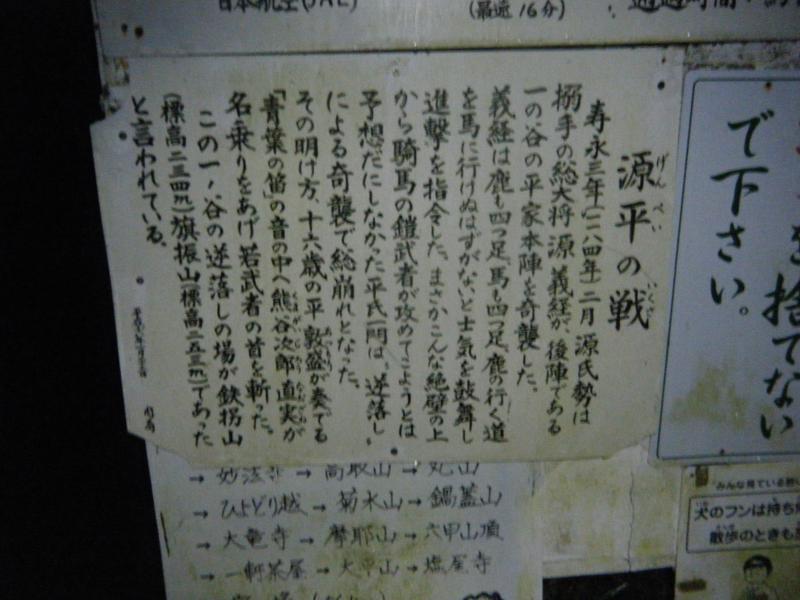 日本航空(JAL)
(最遠16分)
源平の戦
げんぺい
いくさ
寿永三年(一一八四年)二月 源氏勢は
搦手の総大将 源 義経が、後陣である
一の谷の平家本陣を奇襲した。
義経は鹿も四つ足、馬も四つ足、鹿の行く道
を馬に行けぬはずがないと士気を鼓舞し
進撃を指令した。まさかこんな絶壁の上
から騎馬の鎧武者が攻めてこようとは
予想だにしなかった平氏一門は、逆落し
による奇襲で総崩れとなった。
その明け方、十六歳の平 敦盛が奏でる
「青葉の笛」の音の中へ熊谷次郎直実が
名乗りをあげ若武者の首を斬った。
この一ノ谷の逆落しの場が鉄拐山
(標高二三四m)旗振山(標高二五三m)であった
と言われている。
を捨てない
で下さい。
→ 妙法寺 → 高取山 →
→ ひよどり越 → 菊水山 → 鍋蓋山
→ 大竜寺 → 摩耶山 → 六甲山頂
→ 一軒茶屋 → 大平山 → 塩屋寺
みんな見ている
犬のフンは持ち
散歩のときも